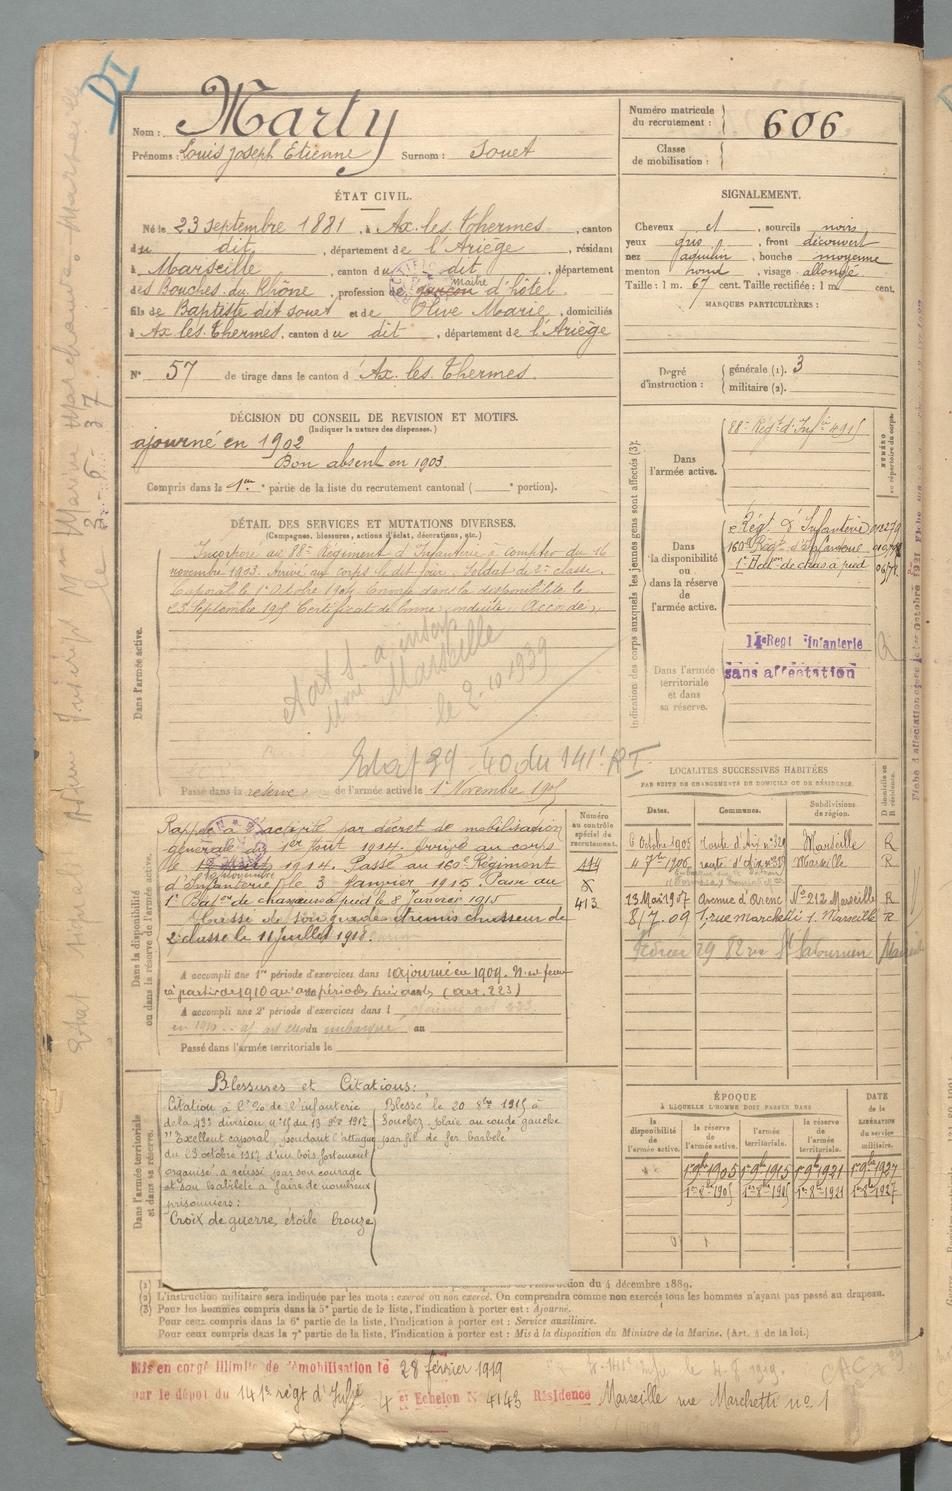 DI
Nom : Marty
Prénoms : Louis Joseph Etienne Surnom : Souet
Numéro matricule du recrutement : 606
Classe de mobilisation :
ÉTAT CIVIL.
Né le 23 septembre 1881, à Ax-les-Thermes, canton
du dit, département de l'Ariège, résidant
à Marseille, canton du dit, département
des Bouches-du-Rhône, profession de garçon maître d'hôtel
fils de Baptiste dit Souet et de Olive Marie, domiciliés
à Ax les Thermes, canton du dit, département de l'Ariège
N° 57 de tirage dans le canton d'Ax les Thermes.
SIGNALEMENT.
Cheveux et, sourcils noirs
yeux gris, front découvert
nez aquilin, bouche moyenne
menton rond, visage allongé
Taille : 1 m. 67 cent. Taille rectifiée : 1 m. cent.
MARQUES PARTICULIÈRES :
Degré d'instruction : générale (1). 3
militaire (2).
DÉCISION DU CONSEIL DE REVISION ET MOTIFS.
(Indiquer la nature des dispenses.)
ajourné en 1902
Bon absent en 1903.
Compris dans la 1re partie de la liste du recrutement cantonal ( portion).
DÉTAIL DES SERVICES ET MUTATIONS DIVERSES.
(Campagnes, blessures, actions d'éclat, décorations, etc.)
Dans l'armée active.
Incorporé au 88e Régiment d'Infanterie à compter du 16
novembre 1903. Arrivé au corps le dit jour. Soldat de 2e classe.
Caporal le 1er Octobre 1904. Envoyé dans la disponibilité le
23 Septembre 1905 Certificat de bonne conduite Accordé.
Marseille
le 2-10 1939
Etat 39-40 du 141e RI
Passé dans la réserve de l'armée active le 1er Novembre 1905
Indication des corps auxquels les jeunes gens sont affectés (3).
NUMÉRO au répertoire du corps.
Dans l'armée active.
88e Régt d'Infie 4915
Dans la disponibilité ou dans la réserve de l'armée active.
Régt d'Infanterie
160e Régt d'Infanterie
1er Batlon de chas à pied
Dans l'armée territoriale et dans sa réserve.
14e Regt Infanterie
sans affectation
Dans la disponibilité ou dans la réserve de l'armée active.
Numéro au contrôle spécial du recrutement.
413
Rappelé à l'activité par décret de mobilisation
générale du 1er Août 1914. Arrivé au corps
le 1914. Passé au 160e Régiment
d'Infanterie le 3 Janvier 1915. Passé au
1er Batlon de chasseurs à pied le 8 Janvier 1915
Cassé de son grade et remis chasseur de
2e classe le 11 Juillet 1918.
A accompli une 1re période d'exercices dans l ajourné en 1909.
à partir de 1910 qu'aux périodes suivants (art. 223)
A accompli une 2e période d'exercices dans l
au
Passé dans l'armée territoriale le
LOCALITÉS SUCCESSIVES HABITÉES
PAR SUITE DE CHANGEMENTS DE DOMICILE OU DE RÉSIDENCE.
Dates. Communes. Subdivisions de région. D domicile ou R résidence.
6 Octobre 1905 route d'Aix n° 329 Marseille R
4 7bre 1906 route d'Aix Marseille R
13 Mai 1907 Avenue d'Arenc N° 212 Marseille R
8/7.09 1. rue Marchetti 1. Marseille R
29 82 rue St Savournin Marseille
Dans l'armée territoriale et dans sa réserve.
Blessures et Citations :
Citation à l'o/o de l'infanterie
de la 43e division n° 15 du 13 9bre 1917
"Excellent caporal, pendant l'attaque
du 23 octobre 1917 d'un bois fortement
organisé a réussi par son courage
et son habileté à faire de nombreux
prisonniers :
Croix de guerre, étoile bronze
Blessé le 20 8bre 1915 à
Souchez, plaie au coude gauche
par fil de fer barbelé
ÉPOQUE
À LAQUELLE L'HOMME DOIT PASSER DANS
DATE de la LIBÉRATION du service militaire.
la disponibilité de l'armée active. la réserve de l'armée active. l'armée territoriale. la réserve de l'armée territoriale.
1er 9bre 1905 1er 9bre 1915 1er 9bre 1921 1er 9bre 1927
1er 8bre 1905 1er 8bre 1915 1er 8bre 1921 1er 8bre 1927
(1) l'instruction du 4 décembre 1889.
(2) L'instruction militaire sera indiquée par les mots : exercé ou non exercé. On comprendra comme non exercés tous les hommes n'ayant pas passé au drapeau.
(3) Pour les hommes compris dans la 5e partie de la liste, l'indication à porter est : Ajourné.
Pour ceux compris dans la 6e partie de la liste, l'indication à porter est : Service auxiliaire.
Pour ceux compris dans la 7e partie de la liste, l'indication à porter est : Mis à la disposition du Ministre de la Marine. (Art. 4 de la loi.)
Mis en congé illimité de démobilisation le 28 février 1919
par le dépôt du 141e régt d'Infie 4e Echelon N° 4143 Résidence Marseille rue Marchetti n° 1